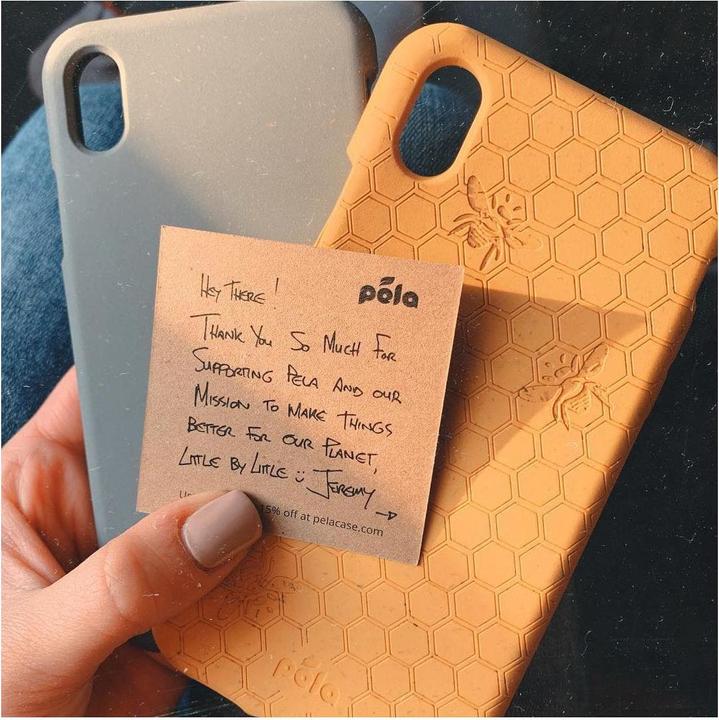 Hey There!
pela
Thank You So Much For
Supporting Pela and our
Mission to Make Things
Better for our Planet,
Little By Little :) Jeremy
15% off at pelacase.com
pela